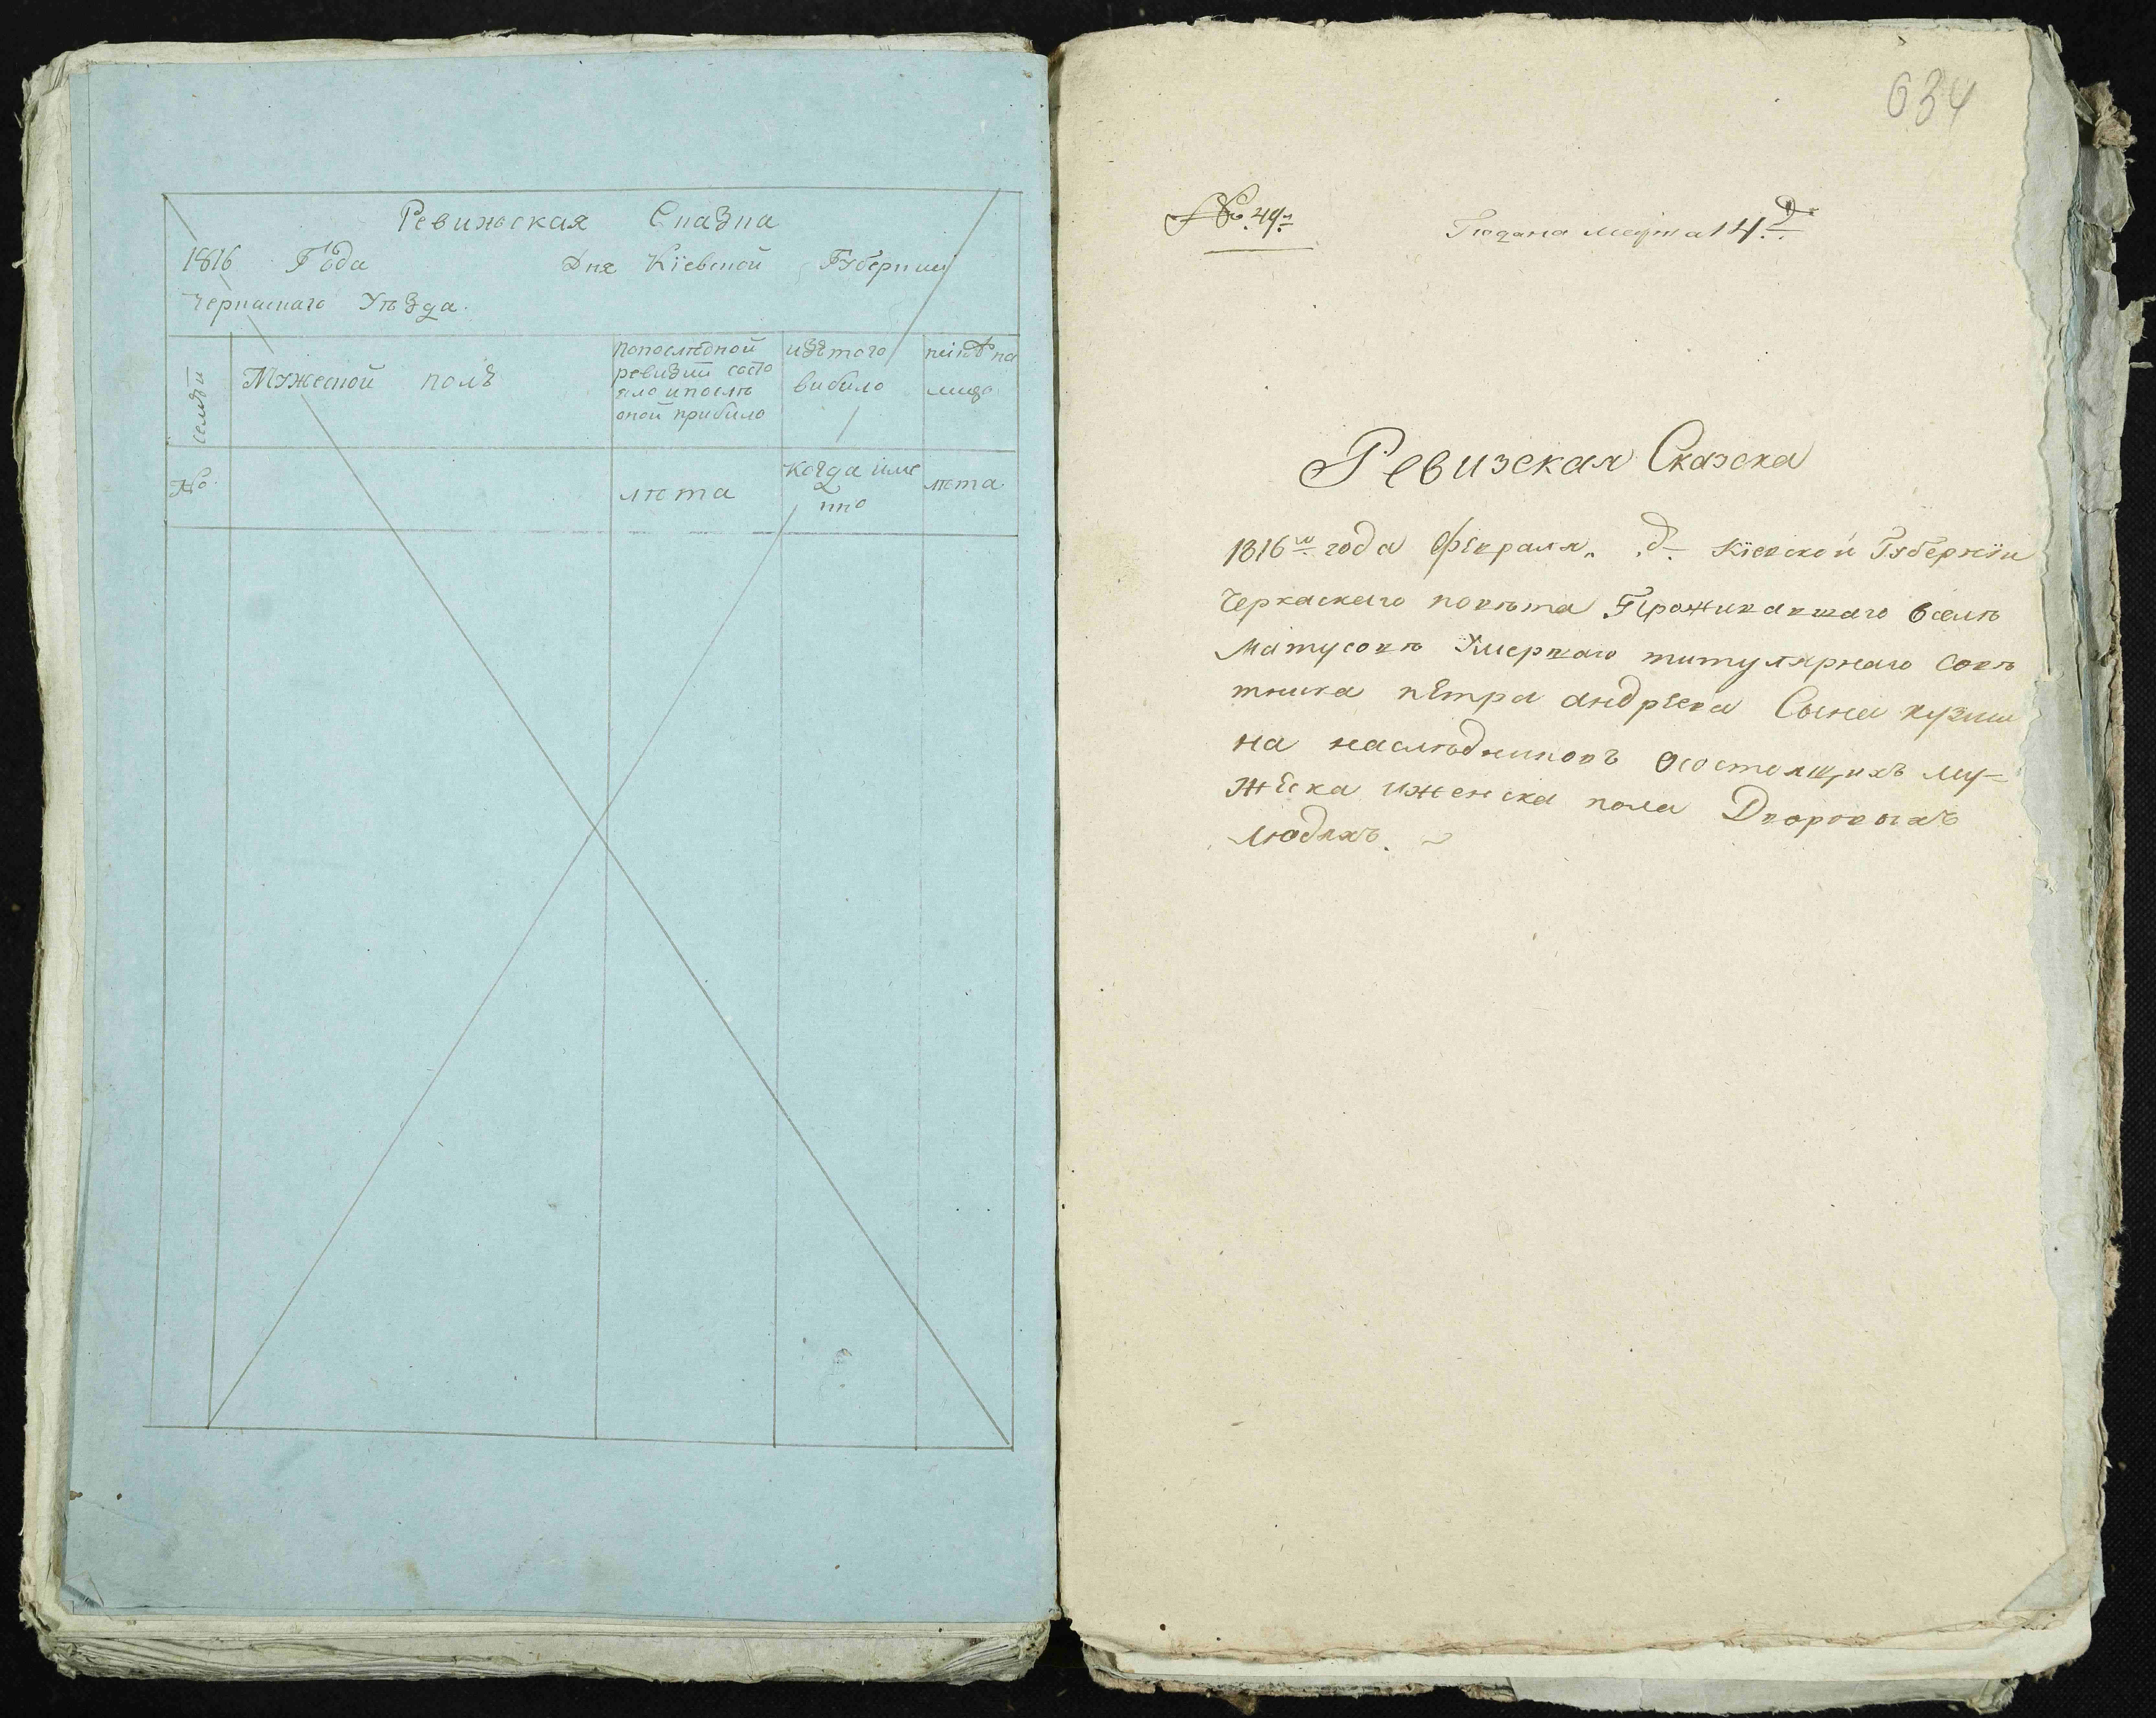 Ревижская Сказка
1816 Года Дня Кіевской Губерніи
Черкаскаго Уѣзда.
семьи
Мужеской полъ
попослѣдной
ревизіи состо
яло ипослѣ
оной прибило
изътого
вибило
нинѣ на
лицо
№
лѣта
когда име
нно
лѣта
634
№. 49.
Подана Марта 14 д
Ревизская Сказска
1816го года Февраля. д. Кіевской Губерніи
Черкаскаго повѣта Проживавшаго вселѣ
Матусовѣ Умершаго титулярнаго Совѣ
тника пЕтра андрЕева Сына кузми
на наслѣдниковъ Осостоящихъ му-
жЕска иженска пола Дворовыхъ
людяхъ.